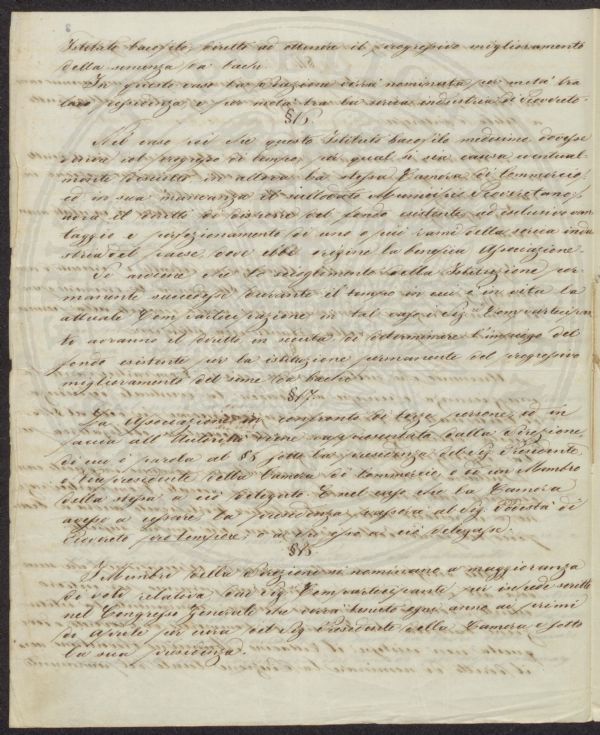 Istituto bacofilo, diretto ad ottenere il progressivo miglioramento
della semenza da bachi.
In questo caso la direzione verrà nominata per metà tra
loro possidenza e per metà tra la serica industria di Rovereto.
§ 16.
Nel caso poi che questo Istituto bacofilo medesimo dovesse
col progresso di tempo, per qual si sia causa eventual-
mente in allora la stessa Camera di Commercio,
ed in sua mancanza il sullodato Municipio Roveretano,
avrà il diritto di disporre del fondo esistente ad esclusivo van-
taggio e perfezionamento di uno o più rami della serica indu
stria del paese, dove ebbe origine la benefica Associazione.
Se invece che lo scioglimento della Istituzione per-
manente succedesse durante il tempo in cui è in vita la
attuale Compartecipazione in tal caso i Sig.ri Compartecipan
ti avranno il diritto in seduta di determinare l'impiego del
fondo esistente per la istituzione permanente del progressivo
miglioramento del seme da bachi.
§ 17.
La Associazione in confronto di terze persone, ed in
faccia all'Autorità viene rappresentata dalla Direzione
di cui è parola al § 8 sotto la presidenza del Sig. Presidente
o Vicepresidente della Camera di Commercio, o di un Membro
della stessa a ciò delegato. E nel caso che la Camera
avesse a cessare la presidenza passerà al Sig. Podestà di
Rovereto pro tempore, o a chi esso a ciò delegasse.
§ 18.
I Membri della Direzione si nominano a maggioranza
di voti relativa dai Sig. Compartecipanti, per ischede scritte
nel Congresso Generale che verrà tenuto ogni anno ai primi
di Aprile per cura del Sig. Presidente della Camera e sotto
la sua presidenza.